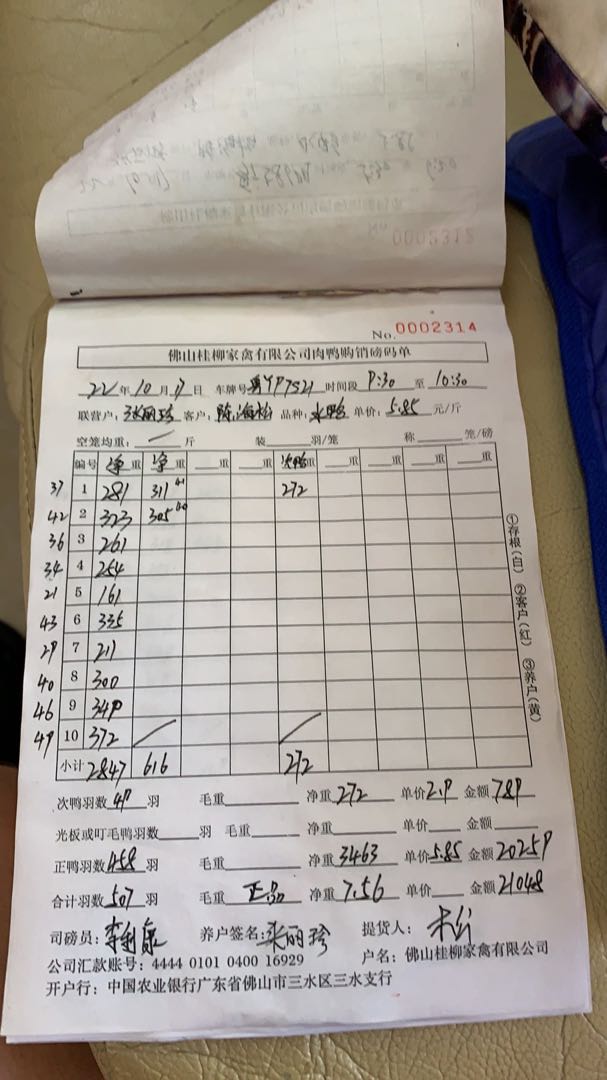 0002312
No. 0002314
佛山桂柳家禽有限公司肉鸭购销磅码单
22年10月17日 车牌号粤YP7521 时间段 9:30 至 10:30
联营户:张丽珍 客户:陈海松 品种:水鸭 单价:5.85 元/斤
空笼均重: / 斤 装 羽/笼 称 笼/磅
编号 净重 净重 重 重 次鸭重 重 重 重 重
37 1 281 311 41 272
42 2 323 305 40
36 3 261
34 4 254
21 5 161
43 6 335
29 7 211
40 8 300
46 9 349
49 10 372 / /
小计 2847 616 272
①存根(白) ②客户(红) ③养户(黄)
次鸭羽数 49 羽 毛重 净重 272 单价 2.9 金额 789
光板或叮毛鸭羽数 羽 毛重 净重 单价 金额
正鸭羽数 458 羽 毛重 净重 3463 单价 5.85 金额 20259
合计羽数 507 羽 毛重 正品 净重 7.56 单价 金额 21048
司磅员: 养户签名:张丽珍 提货人:
公司汇款账号:4444 0101 0400 16929 户名:佛山桂柳家禽有限公司
开户行:中国农业银行广东省佛山市三水区三水支行